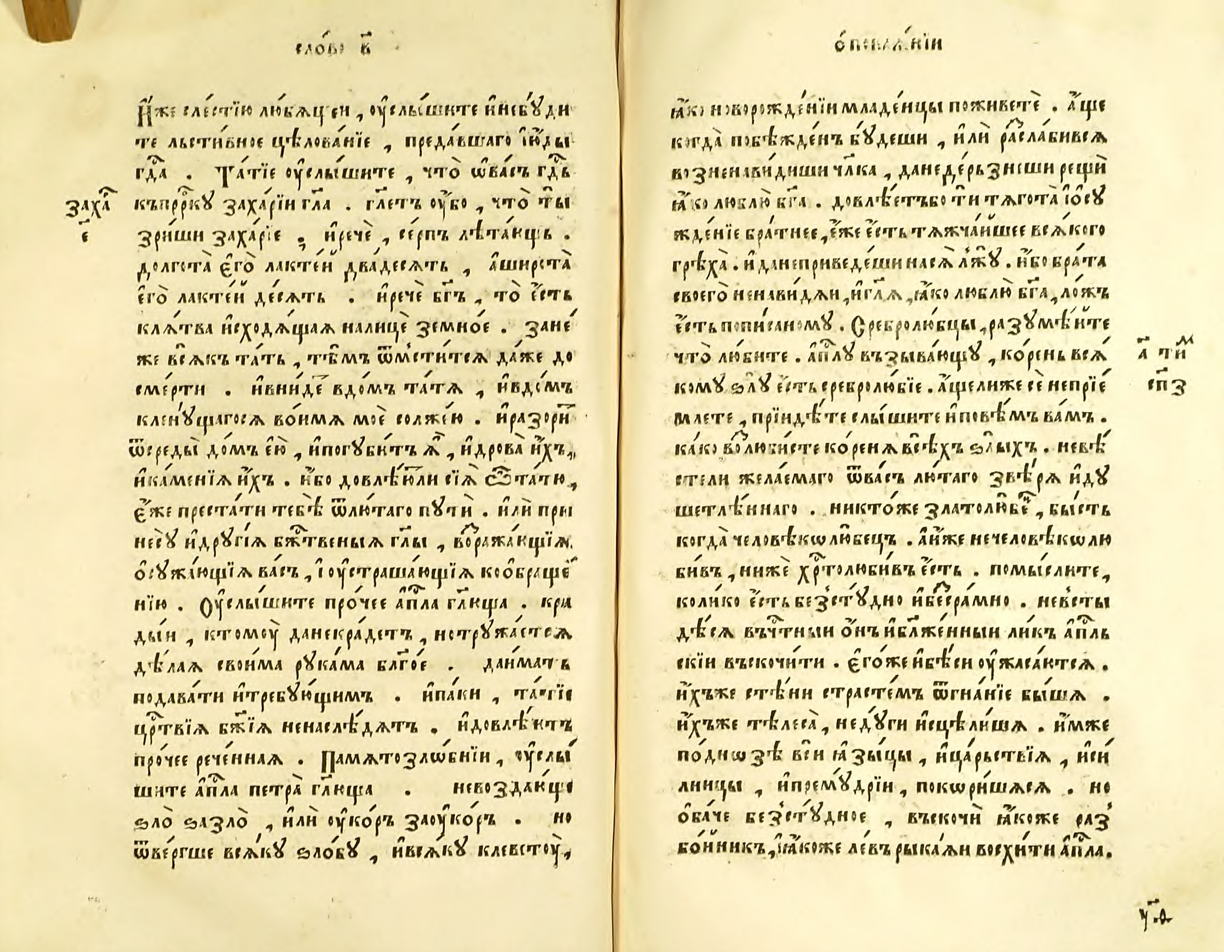 сло́во в҃
И҆́же с̾ле́стїю любѧ́щеи, ᲂу҆слы́шите и҆ и҆збꙋ́ди
те льсти́вное цѣлова́нїе, преда́вшаго і҆ю́ды
гдⷭ҇а. Та́тїе ᲂу҆слы́шите, что̀ ѿва́съ гдⷭ҇ь
захаⷬ҇
къпррⷪ҇кꙋ заха́рїи гл҃а. гл҃етъ ᲂу҆́бо, что̀ ты̀
є҃
зри́ши заха́рїе; и҆речѐ, се́рпъ лѣта́ющь.
долгота̀ є҆го̀ лакте́й два́десѧть, а҆широта̀
є҆го̀ лакте́й де́сѧть. и҆речѐ бг҃ъ, то̀ є҆́сть
клѧ́тва и҆сходѧ́щаѧ налицѐ земно́е. зане́
же всѧ́къ та́ть, тѣ́мъ ѿмсти́тсѧ да́же до
сме́рти. и҆вни́детъ вдо́мъ та́тѧ, и҆вдо́мъ
кленꙋ́щагосѧ во́имѧ моѐ солже́ю. и҆разори́тъ
ѿсреды̀ до́мъ є҆ю̀, и҆погꙋби́тъ ѧ҆̀, и҆дрова̀ и҆́хъ,
и҆ка́менїѧ и҆́хъ. и҆́бо довлѣ́юⷮли сїѧ̀ ѽта́тю,
є҆́же преста́ти тебѣ̀ ѿлю́таго пꙋтѝ. и҆лѝ при
несꙋ̀ и҆дрꙋгі́ѧ бжⷭ҇твеныѧ гл҃ы, воⷥража́ющїѧ,
ѡ҆сꙋжа́ющїѧ ва́съ, і҆ᲂу҆страша́ющїѧ кообраще́
нїю. Оу҆слы́шите про́чее а҆пⷭ҇ла гл҃юща. кра
ды́и, ктомꙋ̀ данекра́детъ, нотрꙋжа́етсѧ
дѣ́лаѧ свои́ма рꙋка́ма блг҃о́е. даи́мать
подава́ти и҆тре́бꙋющимъ. и҆па́ки, та́тїе
црⷭ҇твїѧ бж҃їѧ ненаслѣ́дѧтъ. и҆довлѣ́ютъ
про́чее рече́ннаѧ. Памѧтозло́бнїи, ᲂу҆слы́
шите а҆пⷭ҇ла петра̀ гл҃юща. невоздаю́ще
ѕло̀ заѕло̀, и҆лѝ ᲂу҆ко́ръ заᲂу҆ко́ръ. но
ѿве́ргше всѧ́кꙋ ѕло́бꙋ, и҆всѧ́кꙋ клевєтꙋ̀,
ѡ҆покаѧ́нїи
ꙗ҆́ко новорожде́нїи младе́нцы поживетѐ. а҆́ще
когда̀ побѣжде́нъ бꙋ́деши, и҆лѝ разсла́бивсѧ
возненави́диши чл҃ка, данеде́рьзнеши рещѝ
ꙗ҆́ко люблю̀ бг҃а. довлѣ́етъбо ти тѧгота̀ ѡ҆сꙋ
жде́нїе бра́тнее, є҆́же є҆́сть тѧжча́йшее всѧ́кого
грѣха̀. и҆данеприведе́ши насѧ̀ лжꙋ̀. и҆́бо бра́та
своего̀ ненави́дѧи, и҆гл҃ѧ, ꙗ҆́ко люблю̀ бг҃а, ло́жъ
є҆́сть попи́саномꙋ. Сребролю́бцы, разꙋмѣ́ите
а҃ тиⷨ
что̀ лю́бите. а҆пⷭ҇лꙋ възыва́ющꙋ, ко́рень всѧ́
сп҃з
комꙋ ѕлꙋ̀ є҆́сть сребролю́бїе. а҆́щелиже сѐ непрїе́
млете, прїидѣ́те слы́шите и҆повѣ́мъ ва́мъ.
ка́ко возлюби́сте ко́ренѧ всѣ́хъ ѕлы́хъ. невѣ́
стели жела́емаго ѿва́съ лю́таго ѕвѣ́рѧ и҆дꙋ
шетлѣ́ннаго. никто́же златолю́бецъ, бы́сть
когда̀ человѣколю́бецъ. а҆и҆́же нечеловѣколю́
бивъ, нижѐ хрⷭ҇толюби́въ є҆́сть. помы́слите,
коли́ко є҆́сть безсту́дно и҆безсра́мно. невсты
дѣ́сѧ въчⷭ҇тныи ѻ҆́нъ и҆блаже́нныи ли́къ а҆пⷭ҇ль
скїи въскочи́ти. є҆го́же и҆бѣ́си ᲂу҆жаса́ютсѧ.
и҆́хъже стѣ́ни страсте́мъ ѿгна́нїе бы́шѧ.
и҆́хъже тѣлеса̀, недꙋ́ги и҆сцѣли́шѧ. и҆́мже
по́днозѣ всѝ ꙗ҆зы́цы, и҆ца́рьствїѧ, и҆си́
лницы, и҆премꙋ́дрїи, покори́шѧсѧ. но
ѻ҆ба́че безсту́дное, въскочѝ ꙗ҆́коже раз
бо́йникъ, и҆ꙗ҆́коже ле́въ рыка́ѧи восхи́ти а҆пⷭ҇ла.